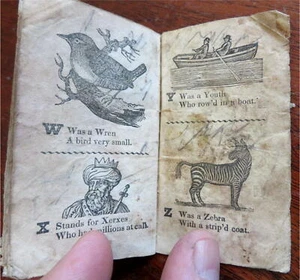 W Was a Wren
A bird very small.
X Stands for Xerxes
Who had millions at call.
Y Was a Youth
Who row'd in a boat.
Z Was a Zebra
With a strip'd coat.